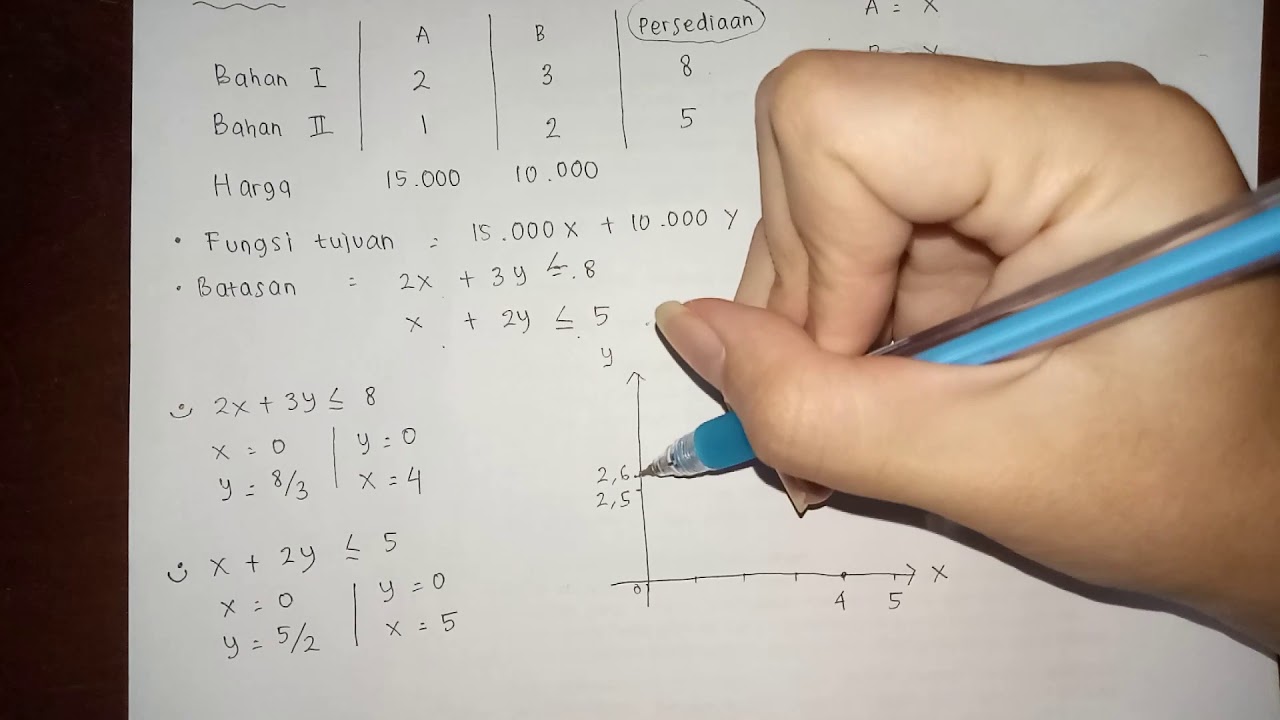 A B Persediaan A = X
Bahan I 2 3 8
Bahan II 1 2 5
Harga 15.000 10.000
• Fungsi tujuan = 15.000 X + 10.000 Y
• Batasan = 2x + 3y ≤ 8
x + 2y ≤ 5
y
2x + 3y ≤ 8
x = 0 y = 0
y = 8/3 x = 4
2,6
2,5
x + 2y ≤ 5
x = 0 y = 0
y = 5/2 x = 5
0 4 5 X